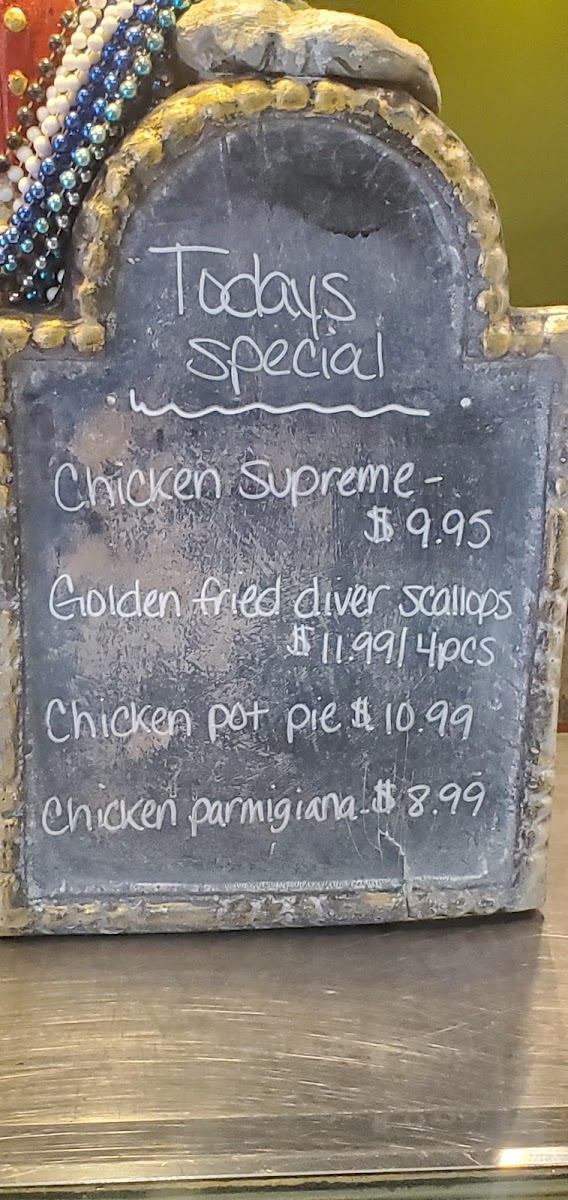 Todays
special
Chicken Supreme -
$ 9.95
Golden fried diver scallops
$ 11.99/4pcs
Chicken pot pie $ 10.99
Chicken parmigiana - $ 8.99